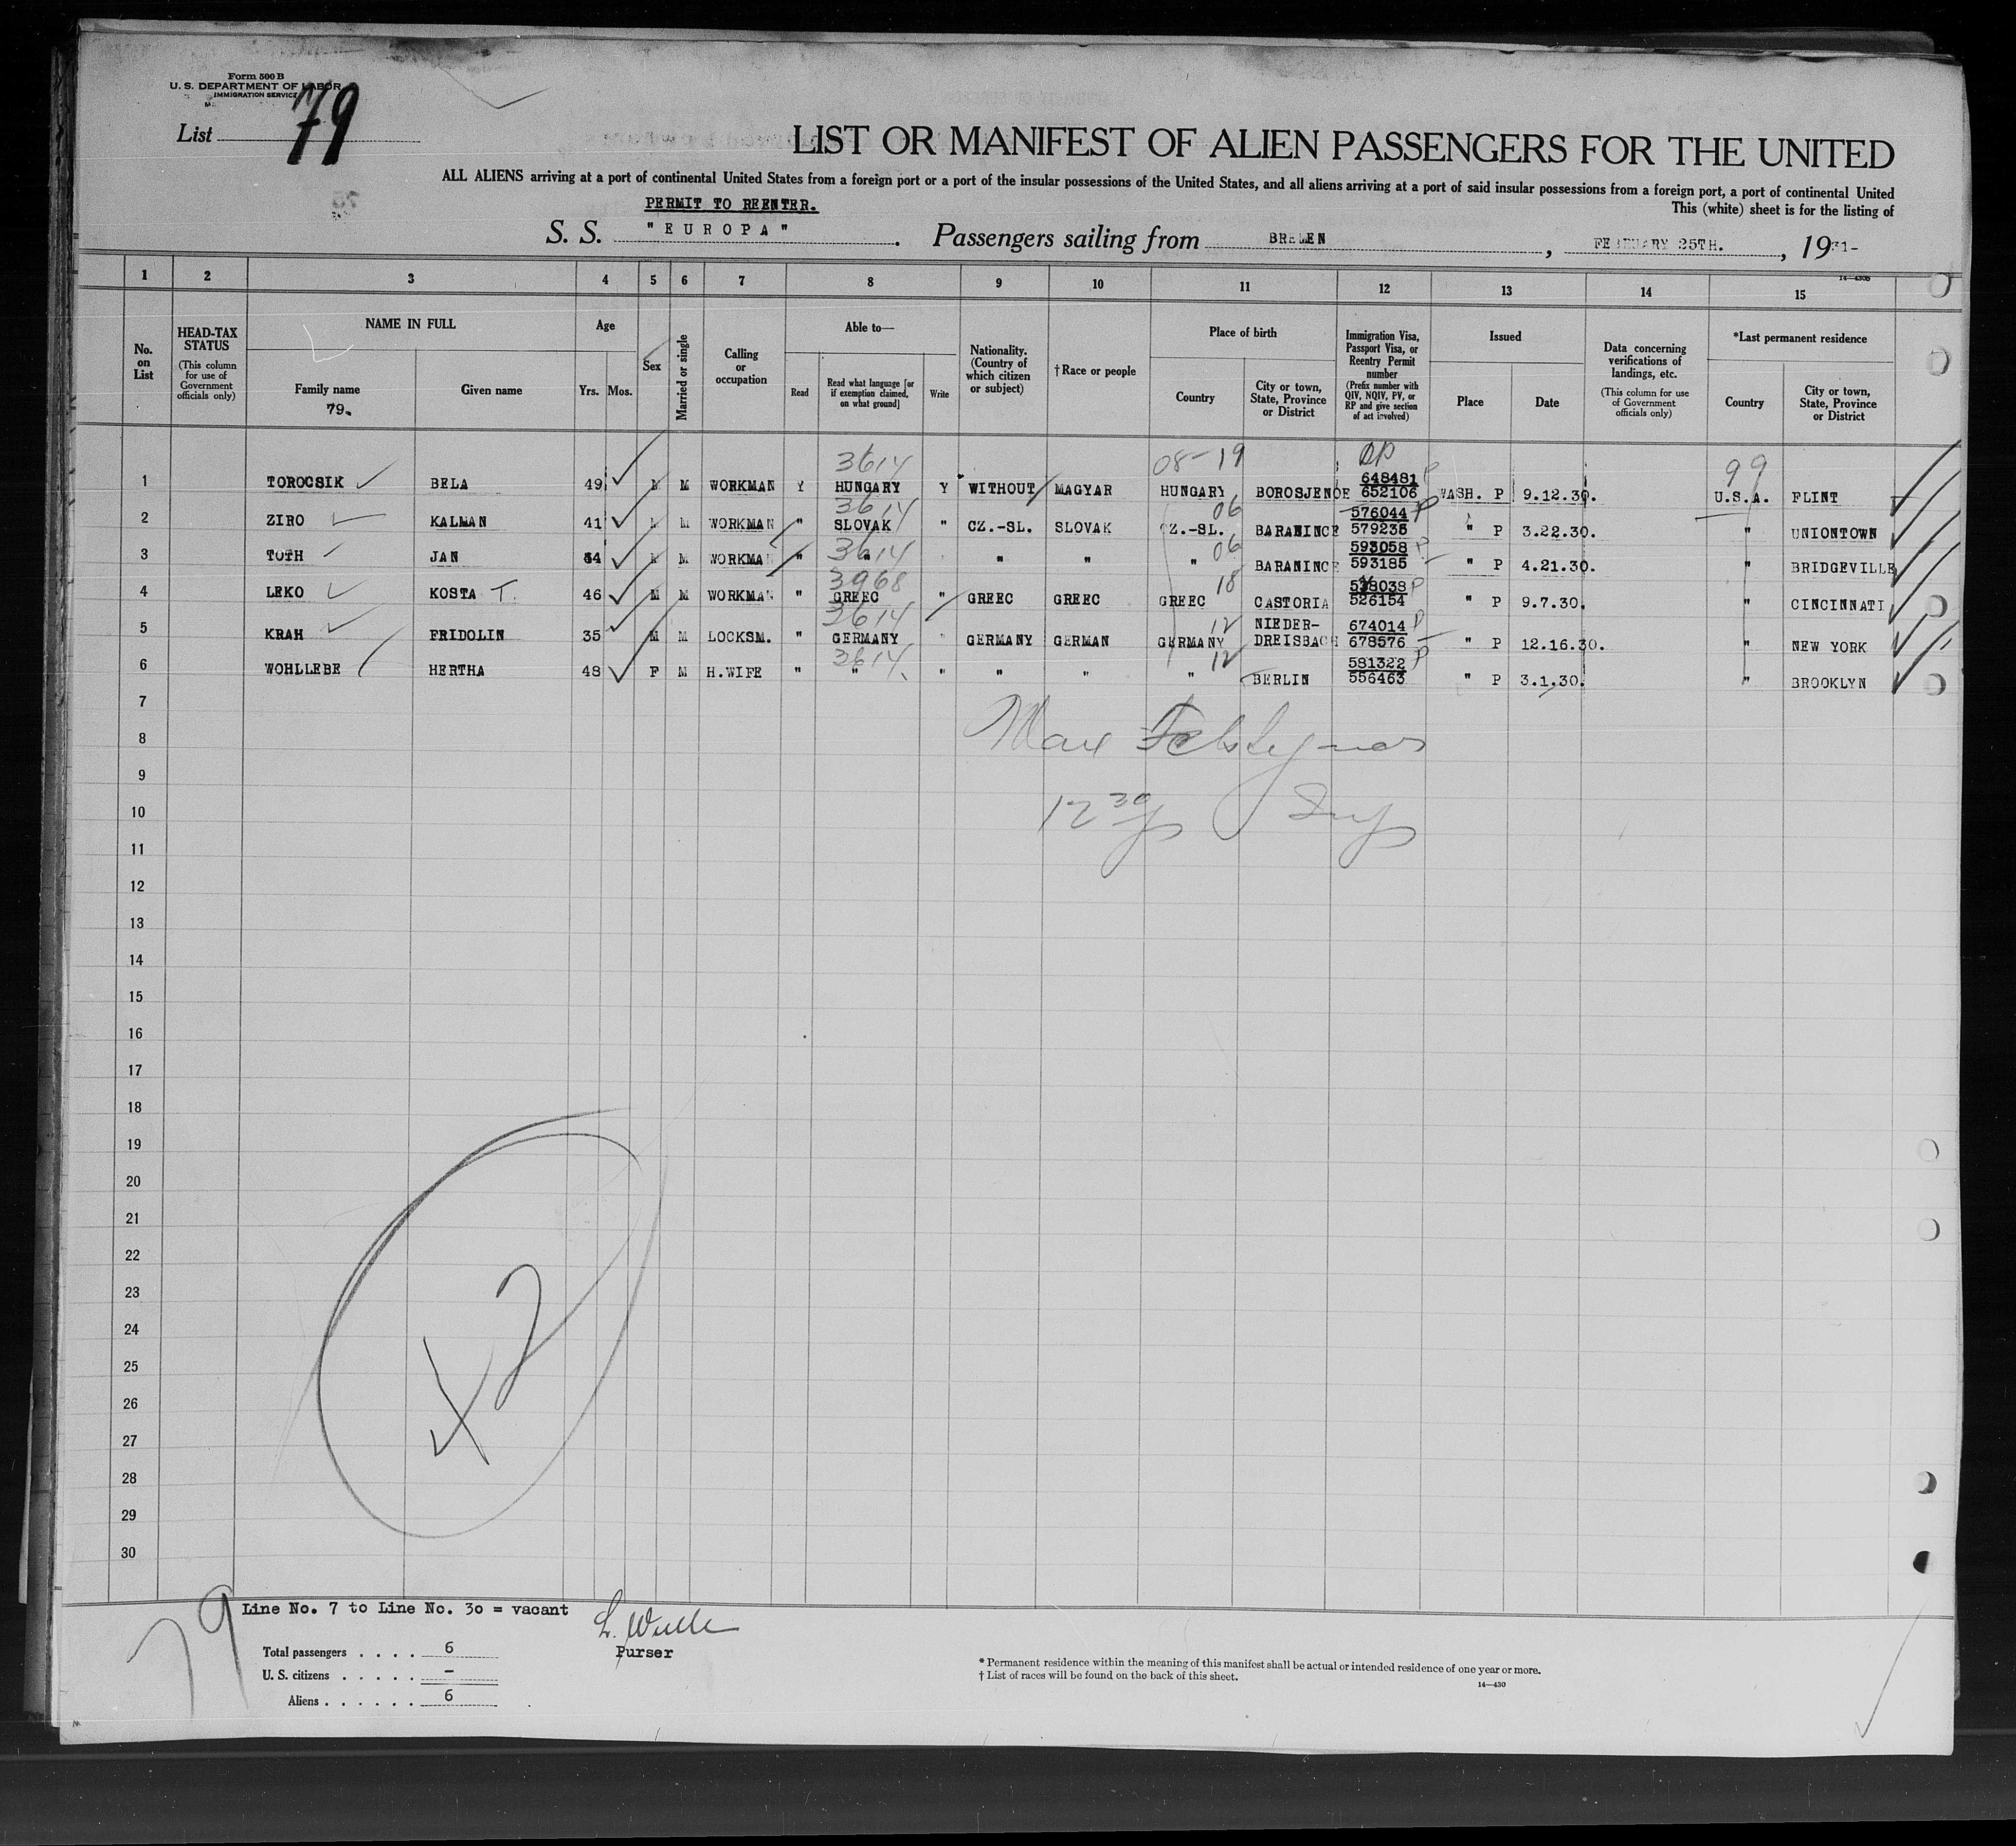 Form 500 B
U. S. DEPARTMENT OF LABOR
IMMIGRATION SERVICE
List 79
LIST OR MANIFEST OF ALIEN PASSENGERS FOR THE UNITED
ALL ALIENS arriving at a port of continental United States from a foreign port or a port of the insular possessions of the United States, and all aliens arriving at a port of said insular possessions from a foreign port, a port of continental United
This (white) sheet is for the listing of
PERMIT TO REENTER.
S. S. "EUROPA". Passengers sailing from BREMEN, FEBRUARY 25TH., 1931-
14—430b
1 2 3 4 5 6 7 8 9 10 11 12 13 14 15
No. on List
HEAD-TAX STATUS (This column for use of Government officials only)
NAME IN FULL
Family name
79.
Given name
Age
Yrs. Mos.
Sex
Married or single
Calling or occupation
Able to—
Read
Read what language [or if exemption claimed, on what ground]
Write
Nationality. (Country of which citizen or subject)
†Race or people
Place of birth
Country
City or town, State, Province or District
Immigration Visa, Passport Visa, or Reentry Permit number (Prefix number with QIV, NQIV, PV, or RP and give section of act involved)
Issued
Place
Date
Data concerning verifications of landings, etc. (This column for use of Government officials only)
*Last permanent residence
Country
City or town, State, Province or District
3614 08-19 RP 99
1 TOROCSIK BELA 49 M M WORKMAN Y HUNGARY Y WITHOUT MAGYAR HUNGARY BOROSJENOE 648481 652106 P WASH. P 9.12.30. U.S.A. FLINT
3614 06
2 ZIRO KALMAN 41 M M WORKMAN " SLOVAK " CZ.-SL. SLOVAK CZ.-SL. BARANINCE 576044 579235 P " P 3.22.30. " UNIONTOWN
3614 06
3 TOTH JAN 44 M M WORKMAN " " " " " BARANINCE 593058 593185 P " P 4.21.30. " BRIDGEVILLE
3968 18
4 LEKO KOSTA T. 46 M M WORKMAN " GREEC " GREEC GREEC GREEC CASTORIA 526154 P " P 9.7.30. " CINCINNATI
3614 12
5 KRAH FRIDOLIN 35 M M LOCKSM. " GERMANY " GERMANY GERMAN GERMANY NIEDER-DREISBACH 674014 678576 P " P 12.16.30. " NEW YORK
3614 12
6 WOHLLEBE HERTHA 48 F M H.WIFE " " " " " " BERLIN 581322 556463 P " P 3.1.30. " BROOKLYN
7
8 Max
9
10 12 30 Insp
11
12
13
14
15
16
17
18
19
20
21
22
23
24
25
26
27
28
29
30
79
Line No. 7 to Line No. 30 = vacant
Purser
Total passengers . . . . 6
U. S. citizens . . . . . –
Aliens . . . . . . 6
* Permanent residence within the meaning of this manifest shall be actual or intended residence of one year or more.
† List of races will be found on the back of this sheet.
14—430